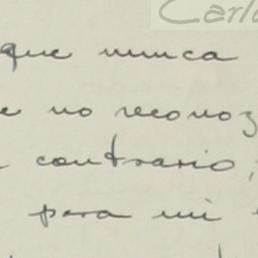 Carlo
que nunca
e no reconoz
contrario;
para mi